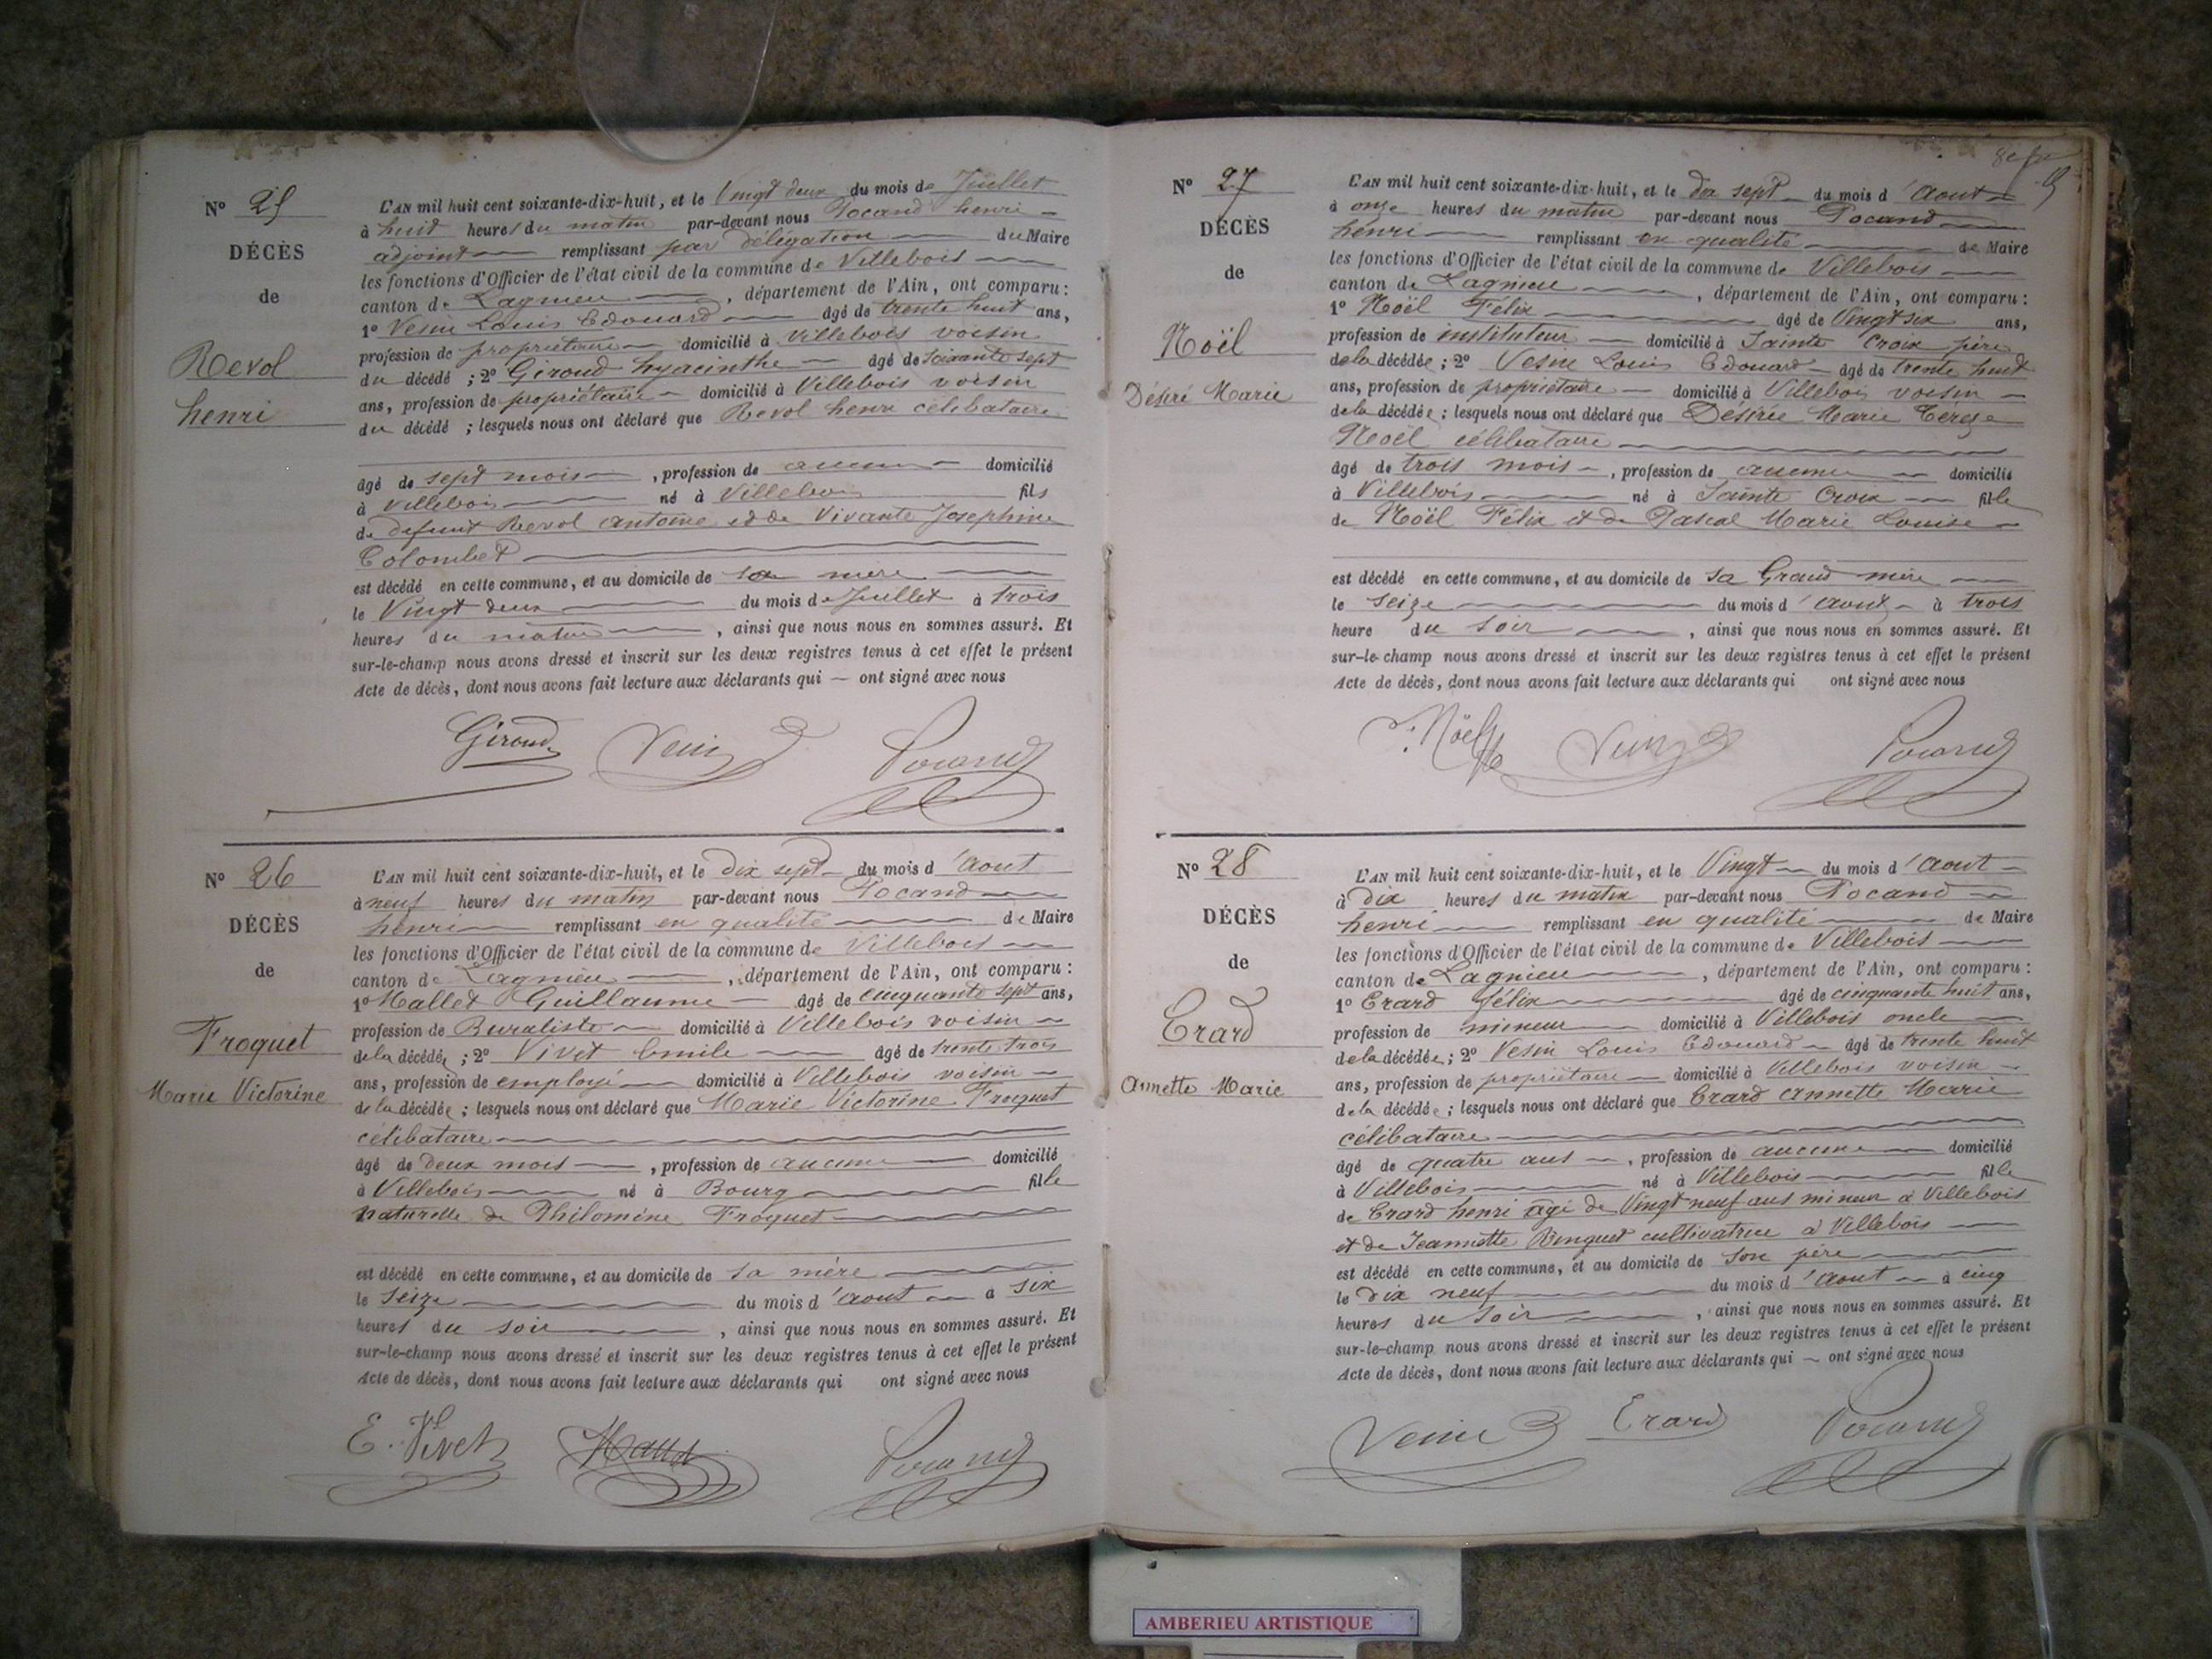 N° 25
DÉCÈS
de
Revol
henri
L'AN mil huit cent soixante-dix-huit, et le Vingt deux du mois de Juillet
à huit heures du matin par-devant nous Pocand henri
adjoint remplissant par délégation du Maire
les fonctions d'Officier de l'état civil de la commune de Villebois
canton de Lagnieu, département de l'Ain, ont comparu :
1° Vesin Louis Edouard âgé de trente huit ans,
profession de propriétaire domicilié à Villebois voisin
du décédé ; 2° Giroud hyacinthe âgé de soixante sept
ans, profession de propriétaire domicilié à Villebois voisin
du décédé ; lesquels nous ont déclaré que Revol henri célibataire
âgé de sept mois, profession de aucune domicilié
à Villebois né à Villebois fils
de défunt Revol antoine et de Vivante Josephine
Colombet
est décédé en cette commune, et au domicile de sa mère
le Vingt deux du mois de Juillet à trois
heures du matin, ainsi que nous nous en sommes assuré. Et
sur-le-champ nous avons dressé et inscrit sur les deux registres tenus à cet effet le présent
Acte de décès, dont nous avons fait lecture aux déclarants qui ont signé avec nous
Giroud Vesin Pocand
N° 26
DÉCÈS
de
Froquet
Marie Victorine
L'AN mil huit cent soixante-dix-huit, et le dix sept du mois d'aout
à neuf heures du matin par-devant nous Pocand
henri remplissant en qualité de Maire
les fonctions d'Officier de l'état civil de la commune de Villebois
canton de Lagnieu, département de l'Ain, ont comparu :
1° Mallet Guillaume âgé de cinquante sept ans,
profession de Buraliste domicilié à Villebois voisin
de la décédée ; 2° Vivet Emile âgé de trente trois
ans, profession de employé domicilié à Villebois voisin
de la décédée ; lesquels nous ont déclaré que Marie Victorine Froquet
célibataire
âgé de deux mois, profession de aucune domicilié
à Villebois né à Bourg fille
naturelle de Philomène Froquet
est décédé en cette commune, et au domicile de sa mère
le seize du mois d'aout à six
heures du soir, ainsi que nous nous en sommes assuré. Et
sur-le-champ nous avons dressé et inscrit sur les deux registres tenus à cet effet le présent
Acte de décès, dont nous avons fait lecture aux déclarants qui ont signé avec nous
E. Vivet Pocand
N° 27
DÉCÈS
de
Noël
Désiré Marie
L'AN mil huit cent soixante-dix-huit, et le dix sept du mois d'aout
à onze heures du matin par-devant nous Pocand
henri remplissant en qualité de Maire
les fonctions d'Officier de l'état civil de la commune de Villebois
canton de Lagnieu, département de l'Ain, ont comparu :
1° Noël Félix âgé de Vingt six ans,
profession de instituteur domicilié à Sainte Croix père
de la décédée ; 2° Vesin Louis Edouard âgé de trente huit
ans, profession de propriétaire domicilié à Villebois voisin
de la décédée ; lesquels nous ont déclaré que Désirée Marie Térèze
Noël célibataire
âgé de trois mois, profession de aucune domicilié
à Villebois né à Sainte Croix fille
de Noël Félix et de Pascal Marie Louise
est décédé en cette commune, et au domicile de sa Grand mère
le seize du mois d'aout à trois
heure du soir, ainsi que nous nous en sommes assuré. Et
sur-le-champ nous avons dressé et inscrit sur les deux registres tenus à cet effet le présent
Acte de décès, dont nous avons fait lecture aux déclarants qui ont signé avec nous
Noël Vesin Pocand
N° 28
DÉCÈS
de
Erard
annette Marie
L'AN mil huit cent soixante-dix-huit, et le Vingt du mois d'aout
à dix heures du matin par-devant nous Pocand
henri remplissant en qualité de Maire
les fonctions d'Officier de l'état civil de la commune de Villebois
canton de Lagnieu, département de l'Ain, ont comparu :
1° Erard félix âgé de cinquante huit ans,
profession de mineur domicilié à Villebois oncle
de la décédée ; 2° Vesin Louis Edouard âgé de trente huit
ans, profession de propriétaire domicilié à Villebois voisin
de la décédée ; lesquels nous ont déclaré que Erard annette Marie
célibataire
âgé de quatre ans, profession de aucune domicilié
à Villebois né à Villebois fille
de Erard henri âgé de Vingt neuf ans mineur à Villebois
et de Jeannette Binguet cultivatrice à Villebois
est décédé en cette commune, et au domicile de son père
le dix neuf du mois d'aout à cinq
heures du soir, ainsi que nous nous en sommes assuré. Et
sur-le-champ nous avons dressé et inscrit sur les deux registres tenus à cet effet le présent
Acte de décès, dont nous avons fait lecture aux déclarants qui ont signé avec nous
Vesin Erard Pocand
AMBERIEU ARTISTIQUE